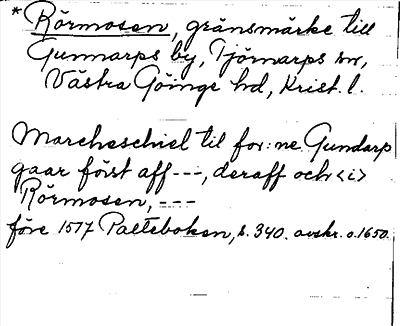 * Rörmosen, gränsmärke till
Gunnarps by, Tjörnarps sn,
Västra Göinge hd, Krist. l.
Marcheschiel til for:ne Gundarp
gaar först aff ---, deraff och <i>
Rörmosen, ---
före 1577 Palteboken, s. 340. avskr. o. 1650.